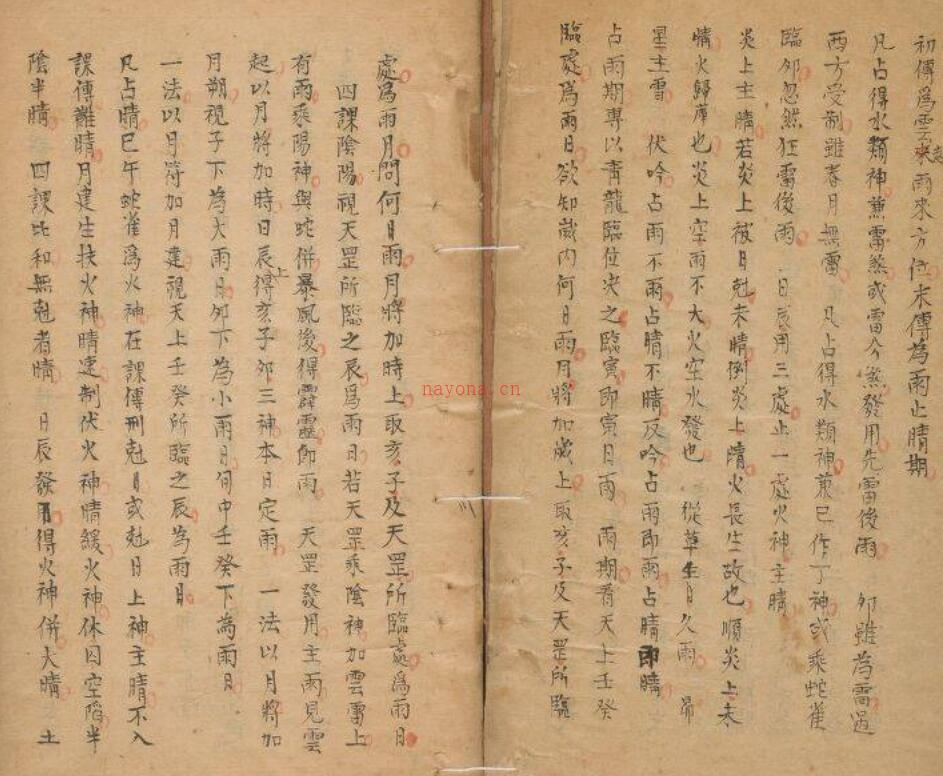 初傳為雲來雨來方位末傳為雨止晴期
凡占得水類神兼雷煞或雷今煞發用先雷後雨 夘雖為雷遇
酉方受制雖春月無雷 凡占得水類神兼巳作丁神或乘蛇雀
臨夘忽然狂雷後雨 日辰用三處止一處火神主晴
炎上主晴若炎上被日尅未晴倒炎上晴火長生故也順炎上未
晴火歸庫也炎上空雨不大火空水發也 從草生日久雨 昴
星主雪 伏吟占雨不雨占晴不晴反吟占雨即雨占晴即晴
占雨期專以青龍臨位决之臨寅即寅日雨 雨期看天上壬癸
臨處為雨日欲知歲内何日雨月將加歲上取亥子及天罡所臨
處為雨月問何日雨月將加時上取亥子及天罡所臨處為雨日
四課陰陽視天罡所臨之辰為雨日若天罡乘陰神加雲雷上
有雨乘陽神與蛇併暴風後得霹靂即雨 天罡發用主雨見雲
起以月將加時日辰上得亥子夘三神本日定雨 一法以月將加
月朔視子下為大雨日夘下為小雨日旬中壬癸下為雨日
一法以月符加月建視天上壬癸所臨之辰為雨日
凡占晴巳午蛇雀為火神在課傳刑尅日或尅日上神主晴不入
課傳難晴月建生扶火神晴速制伏火神晴緩火神休囚空陷半
陰半晴 四課比和無尅者晴 日辰發用得火神併大晴 土
nayona.cn